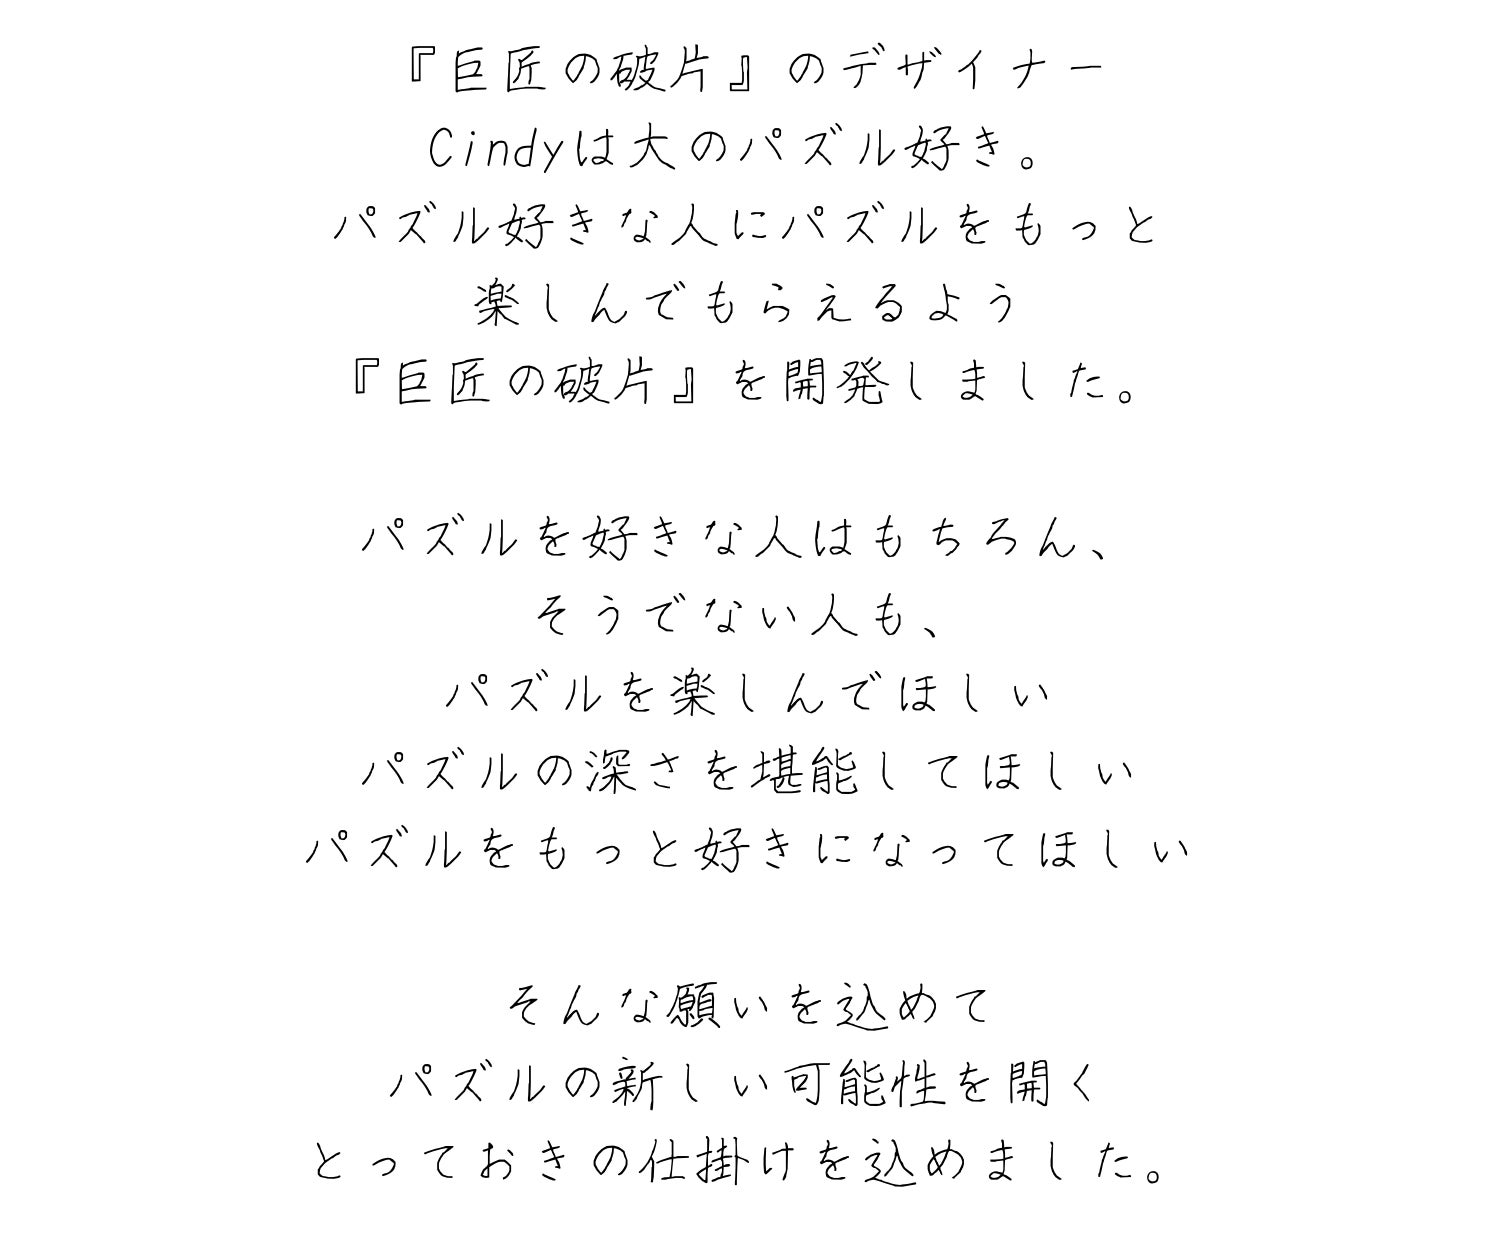 『巨匠の破片』のデザイナー
Cindyは大のパズル好き。
パズル好きな人にパズルをもっと
楽しんでもらえるよう
『巨匠の破片』を開発しました。
パズルを好きな人はもちろん、
そうでない人も、
パズルを楽しんでほしい
パズルの深さを堪能してほしい
パズルをもっと好きになってほしい
そんな願いを込めて
パズルの新しい可能性を開く
とっておきの仕掛けを込めました。